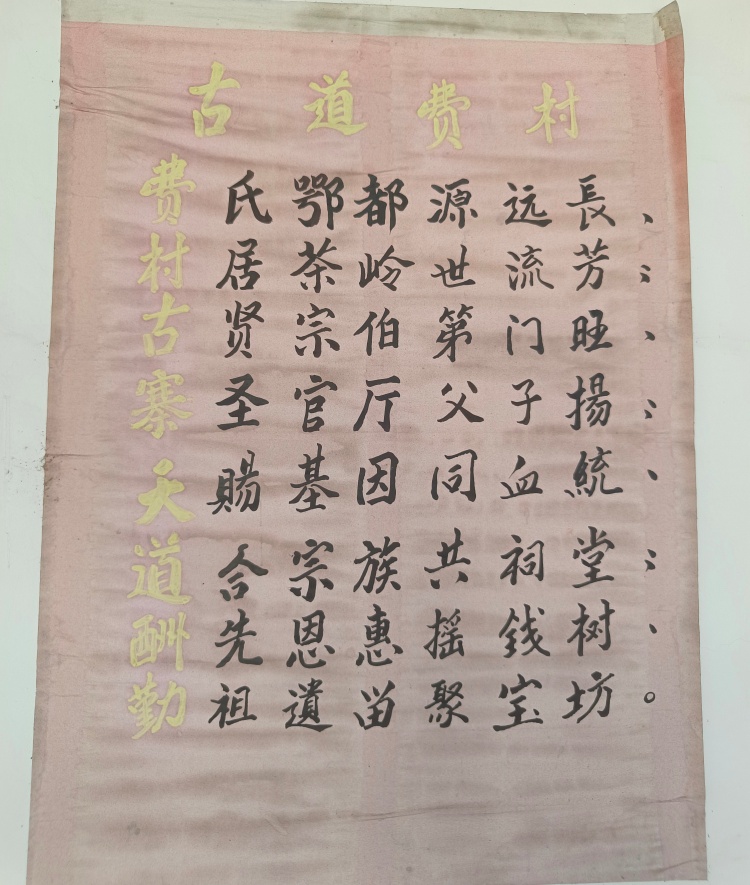 古道费村
费氏鄂都源远長、
村居茶岭世流芳；
古贤宗伯第门旺、
寨圣官厅父子揚；
天賜基因同血統、
道合宗族共祠堂；
酬先恩惠摇錢树、
勤祖遺畄聚宝坊。